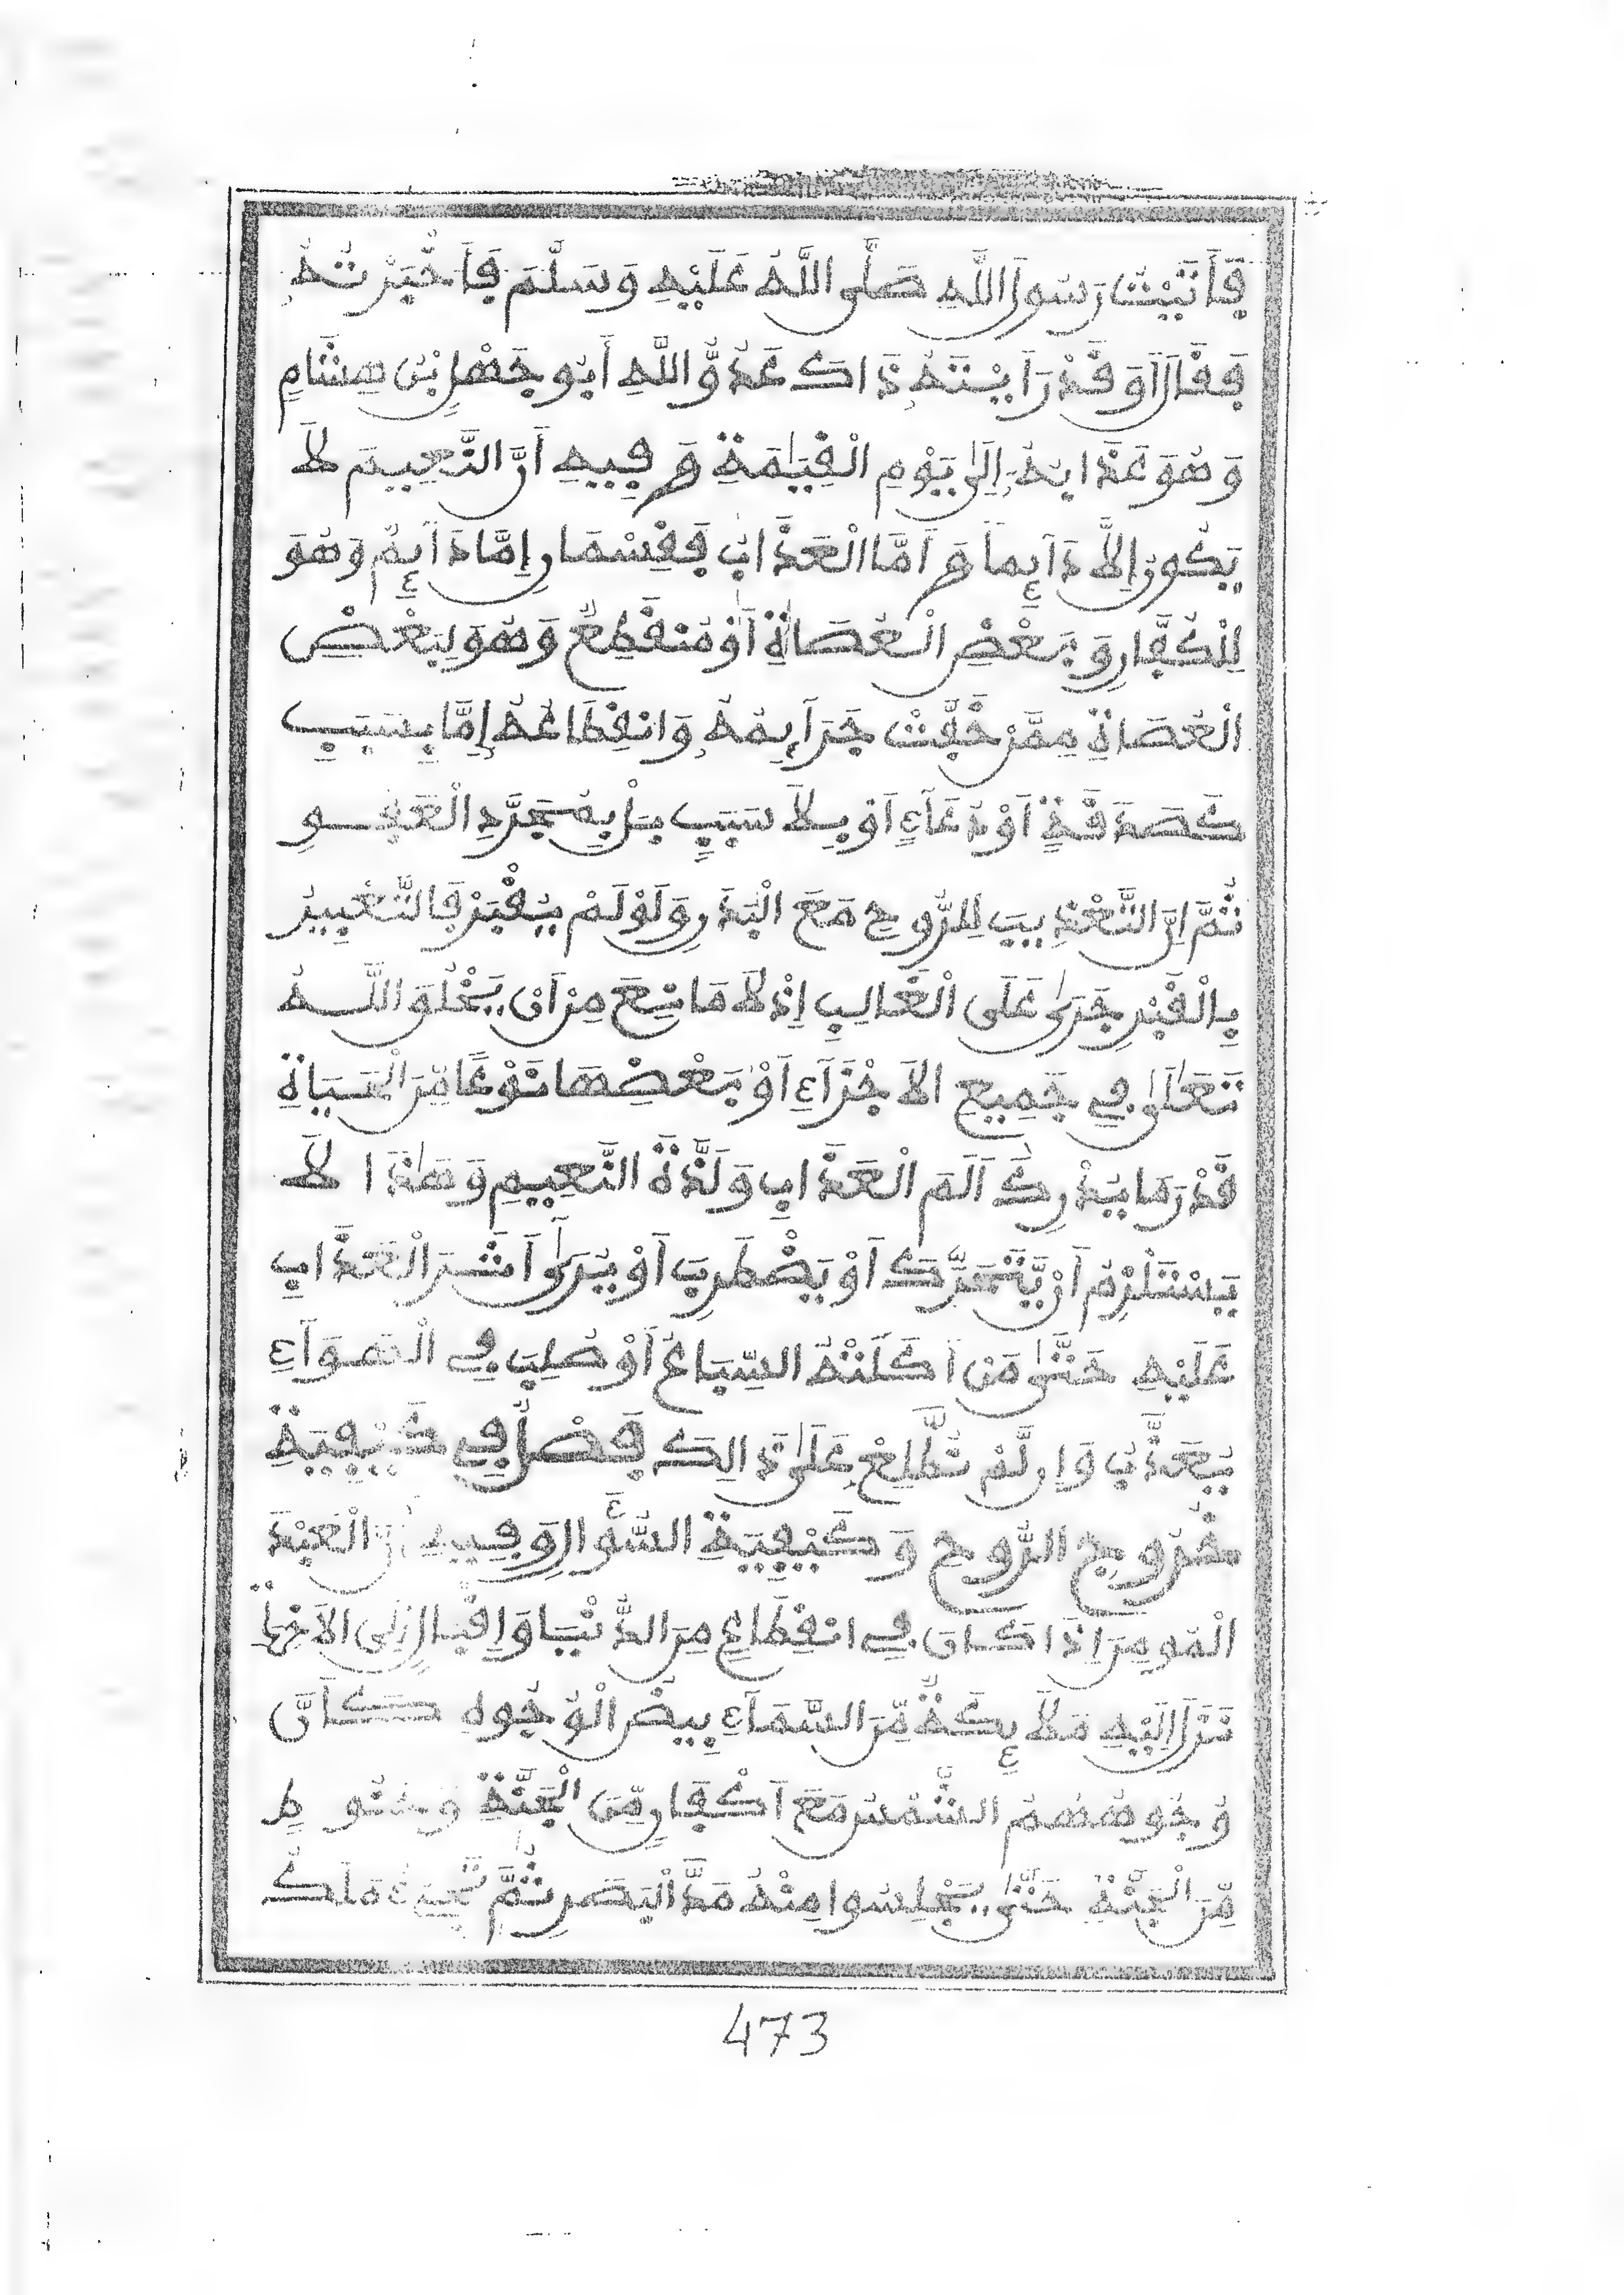 فَأَتَيْتُ رَسُولَ اللَّهِ صَلَّى اللَّهُ عَلَيْهِ وَسَلَّمَ فَأَخْبَرْتُهُ
فَقَالَ أَوَ قَدْ رَأَيْتَهُ ذَاكَ عَدُوُّ اللَّهِ أَبُو جَهْلِ بْنُ هِشَامٍ
وَهُوَ عَذَابُهُ إِلَى يَوْمِ الْقِيَمَةِ هـ وَفِيهِ أَنَّ النَّعِيمَ لَا
يَكُونُ إِلَّا دَآئِماً هـ أَمَّا الْعَذَابُ فَقِسْمَانِ إِمَّا دَآئِمٌ وَهُوَ
لِلْكُفَّارِ وَبَعْضِ الْعُصَاةِ أَوْ مُنْقَطِعٌ وَهُوَ لِبَعْضِ
الْعُصَاةِ مِمَّنْ خَفَّتْ جَرَآئِمُهُ وَانْقِطَاعُهُ إِمَّا بِسَبَبِ
كَصَدَقَةٍ أَوْ دُعَآءٍ أَوْ بِلَا سَبَبٍ بَلْ بِمُجَرَّدِ الْعَفْوِ
ثُمَّ إِنَّ التَّعْذِيبَ لِلرُّوحِ مَعَ الْبَدَنِ وَلَوْ لَمْ يُقْبَرْ فَالتَّعْبِيرُ
بِالْقَبْرِ جَرَى عَلَى الْغَالِبِ إِذْ لَا مَانِعَ مِنْ أَنْ يَخْلُقَ اللَّهُ
تَعَالَى فِي جَمِيعِ الْأَجْزَآءِ أَوْ بَعْضِهَا نَوْعًا مِّنَ الْحَيَاةِ
قَدْرَ مَا يُدْرِكُ أَلَمَ الْعَذَابِ وَلَذَّةَ النَّعِيمِ وَهَذَا لَا
يَسْتَلْزِمُ أَنْ يَّتَحَرَّكَ أَوْ يَضْطَرِبَ أَوْ يُرَى أَثَرَ الْعَذَابِ
عَلَيْهِ حَتَّى مَنْ أَكَلَتْهُ السِّبَاعُ أَوْ صُلِبَ فِي الْهَوَآءِ
يُعَذَّبُ وَإِن لَّمْ نَطَّلِعْ عَلَى ذَالِكَ فَصْلٌ فِي كَيْفِيَةِ
خُرُوجِ الرُّوحِ وَكَيْفِيَةِ السُّؤَالِ وَفِيهِ أَنَّ الْعَبْدَ
الْمُومِنَ إِذَا كَانَ فِي انْقِطَاعٍ مِنَ الدُّنْيَا وَإِقْبَالٍ إِلَى الْآخِرَةِ
نَزَلَ إِلَيْهِ مَلَائِكَةٌ مِّنَ السَّمَآءِ بِيضُ الْوُجُوهِ كَأَنَّ
وُجُوهَهُمُ الشَّمْسُ مَعَ أَكْفَانٍ مِّنَ الْجَنَّةِ وَحَنُوطٍ
مِّنَ الْجَنَّةِ حَتَّى يَجْلِسُوا مِنْهُ مَدَّ الْبَصَرِ ثُمَّ يَجِيءُ مَلَكُ
473